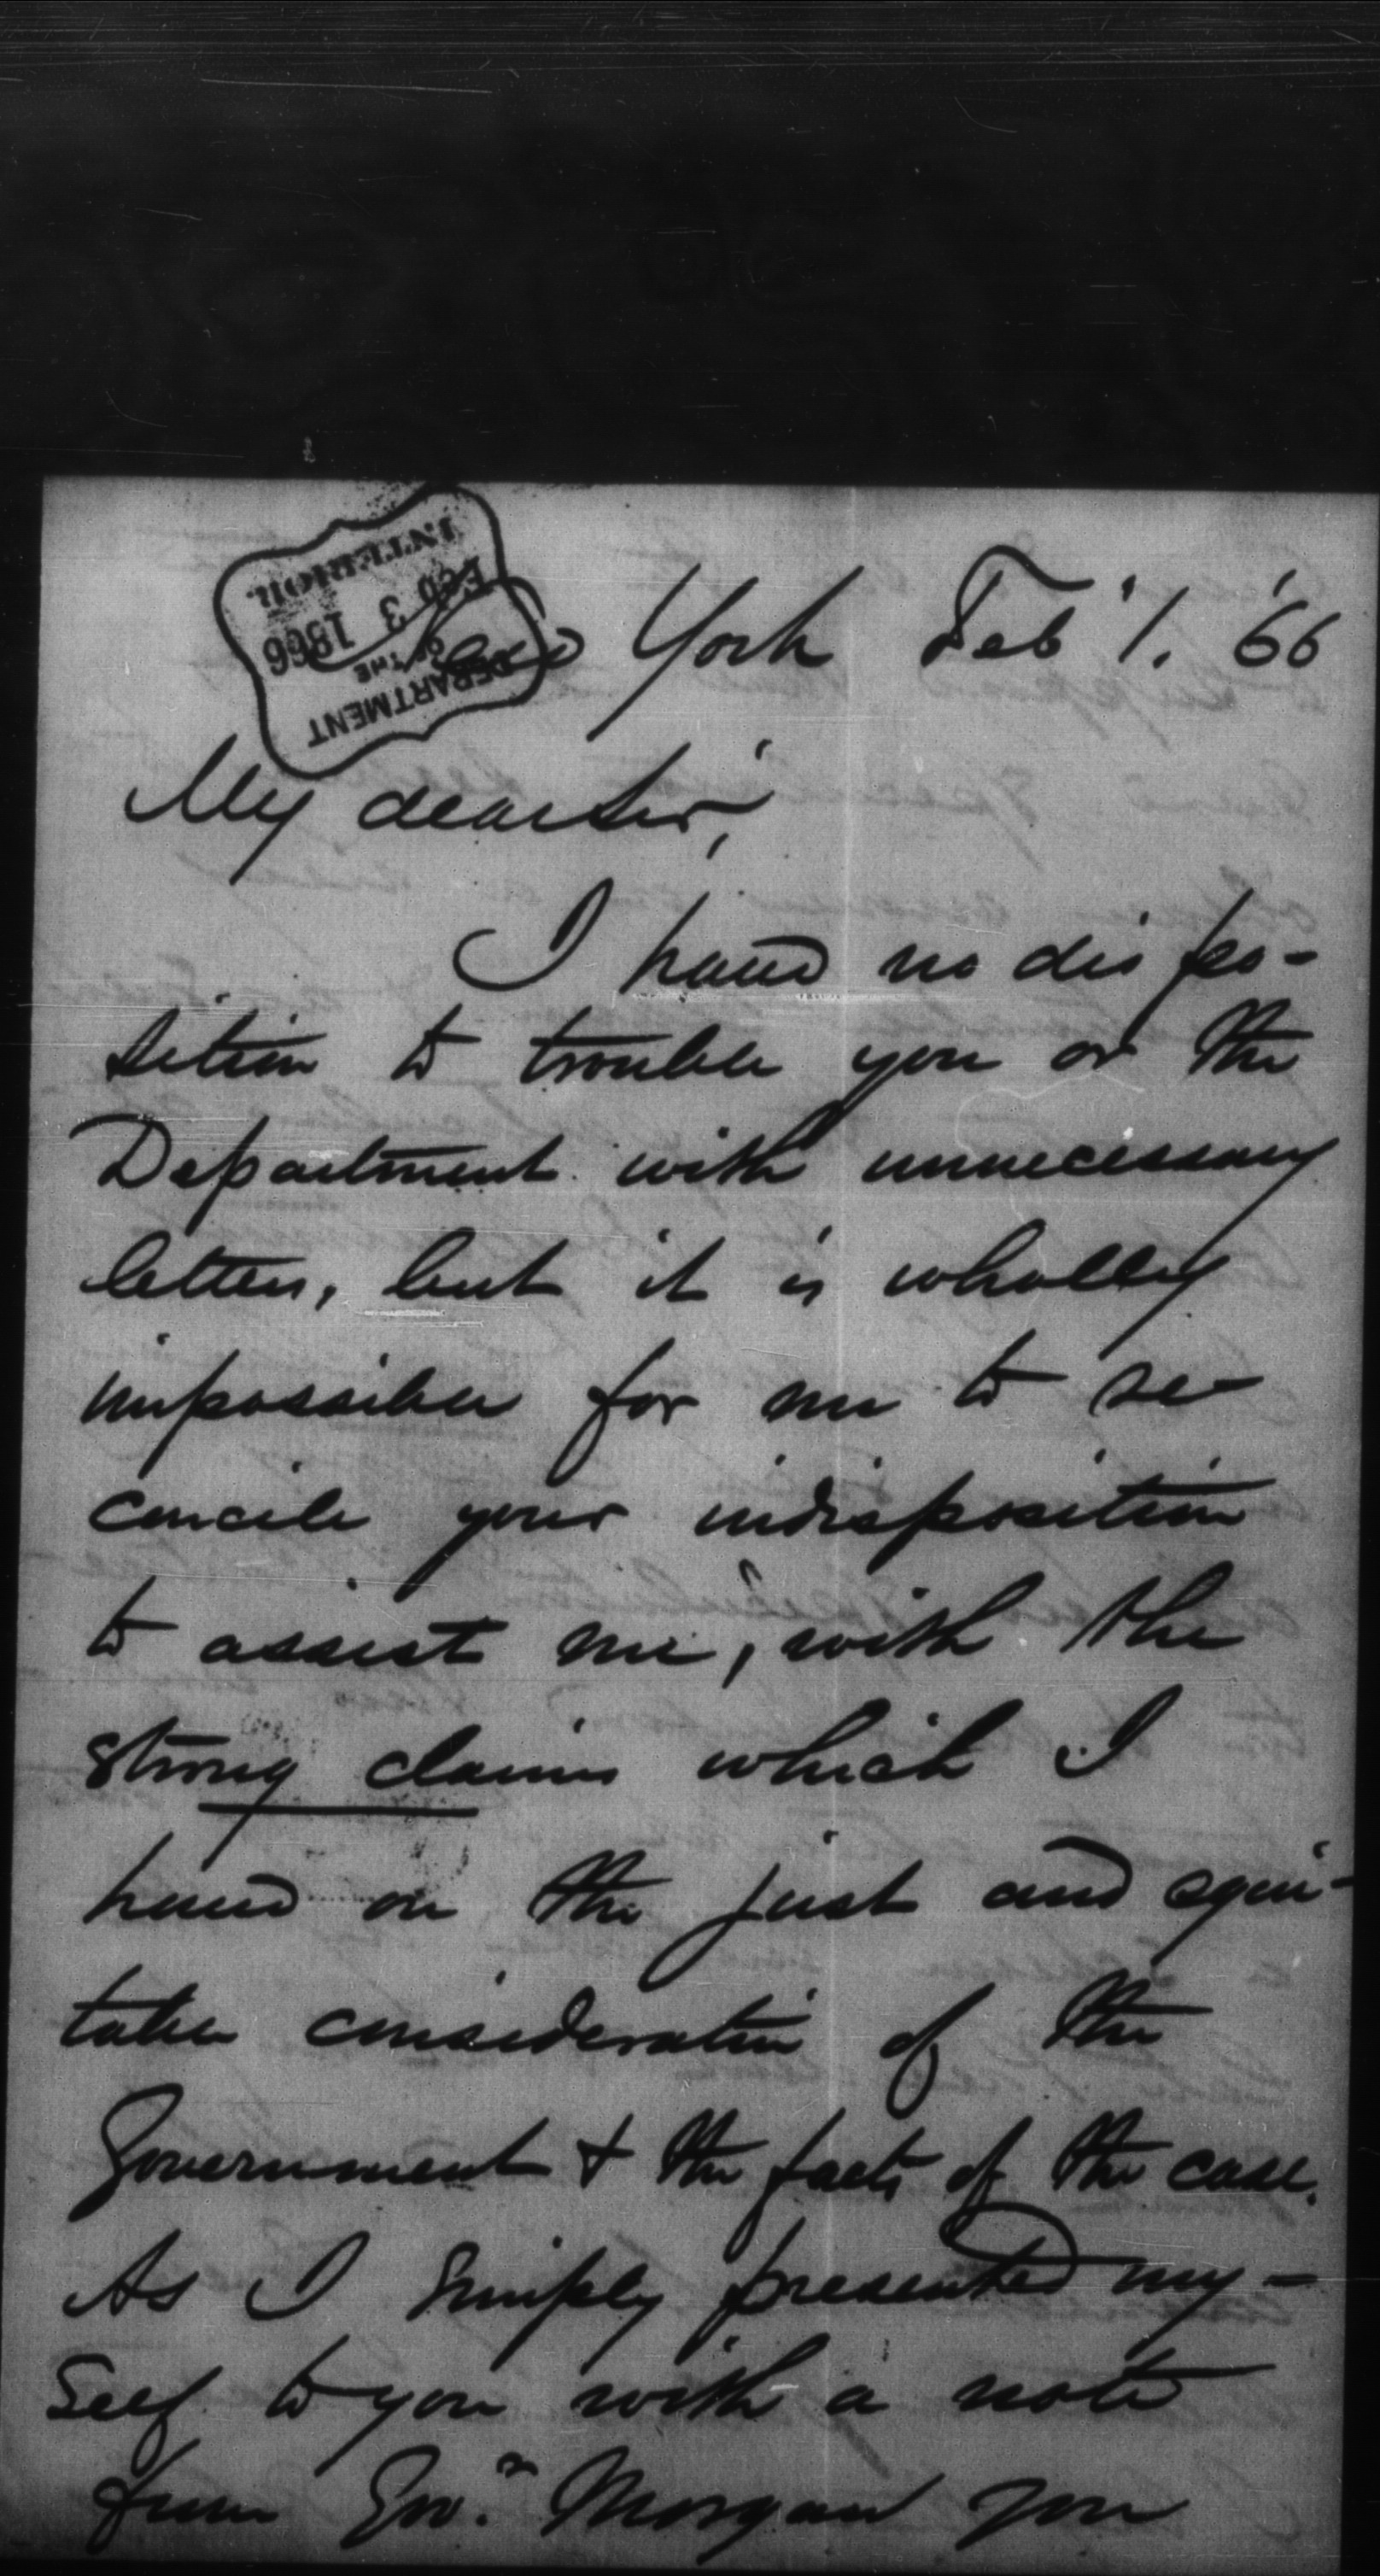 DEPARTMENT
OF THE
FEB 3 1866
INTERIOR.
New York Feb '1. '66
My dear Sir,
I have no dispo-
sition to trouble you or the
Department with unnecessary
letters, but it is wholly
impossible for me to re-
concile your indisposition
to assist me, with the
strong claims which I
have on the just and equi-
table consideration of the
Government & the facts of the case.
As I simply presented my-
self to you with a note
from Gov.r Morgan you